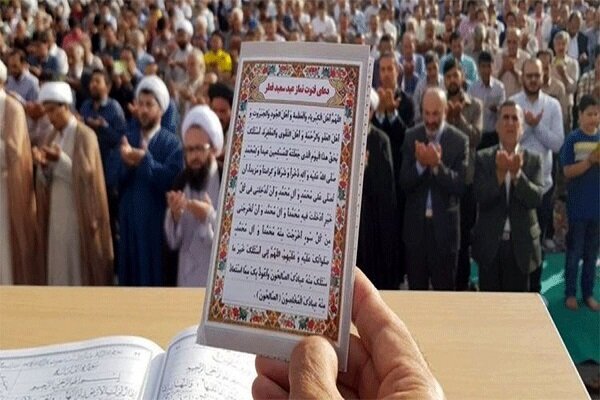 دعای قنوت نماز عید سعید فطر
اللهم أهل الكبرياء والعظمة و أهل الجود والجبروت و
أهل العفو والرحمة و أهل التقوى والمغفرة أسئلك
بحق هذا اليوم الذى جعلته للمسلمين عيداً ولمحمد
صلى الله عليه و آله ذخراً و شرفاً و كرامة و مزيداً أن
تصلى على محمد و آل محمد و أن تدخلنى فى
خير أدخلت فيه محمداً و آل محمد و أن تخرجنى
من كل سوء أخرجت منه محمداً و آل محمد
صلواتك عليه و عليهم اللهم إنى أسئلك خير ما
سئلك منه عبادك الصالحون وأعوذ بك مما استعاذ
منه عبادك المخلصون (الصالحون).